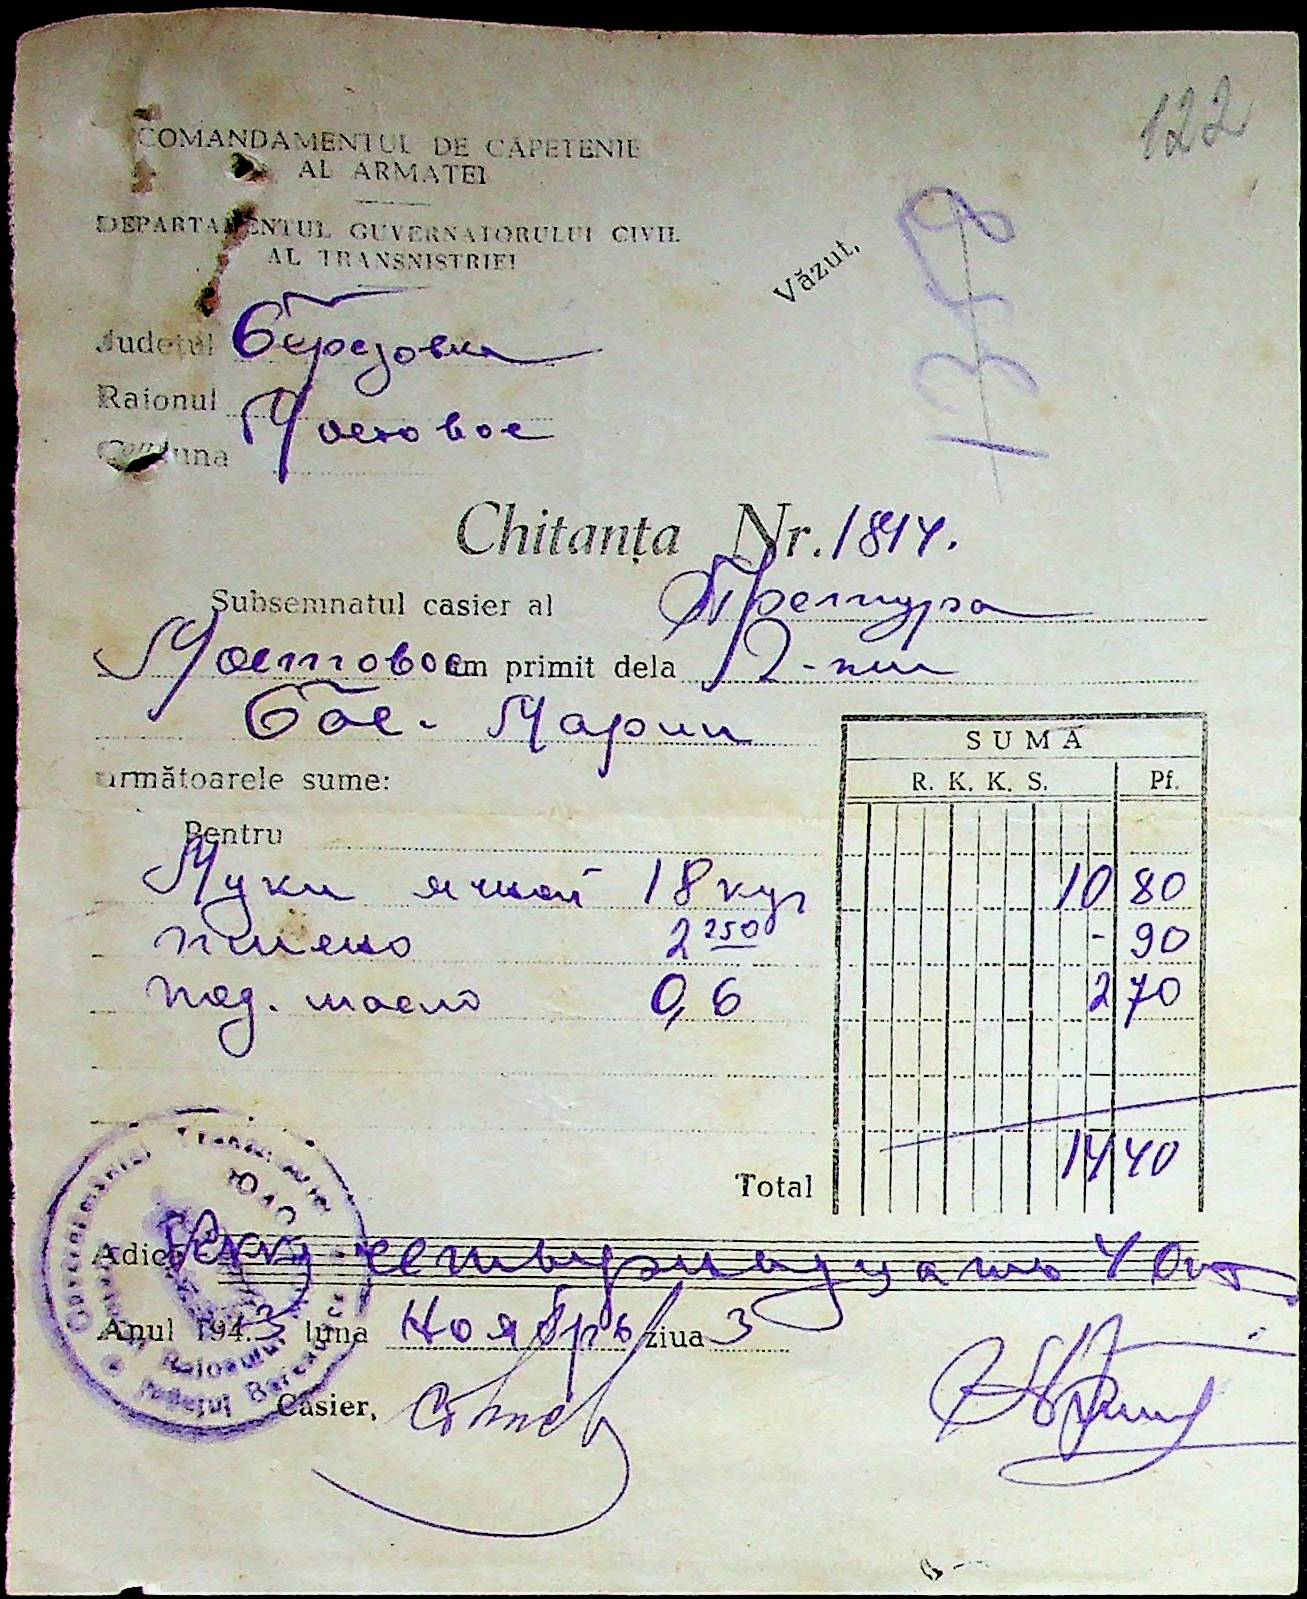 122
COMANDAMENTUL DE CAPETENIE
AL ARMATEI
DEPARTAMENTUL GUVERNATORULUI CIVIL
AL TRANSNISTRIEI
Văzut,
1358
Județul Березовка
Raionul Мостовое
Comuna
Chitanța Nr. 1814.
Subsemnatul casier al Претура
Мостовое am primit dela
Марии
următoarele sume:
SUMA
R. K. K. S. Pf.
Pentru
Муки ячной 18 кугр 10 80
пшено 2 250 - 90
под. масло 0,6 2 70
Total 14 40
Adică четырнадцать 40
Anul 1943 luna Ноябрь ziua 3
Casier,
Guvernământul Transnistriei
Raionului
Județul Berezovca